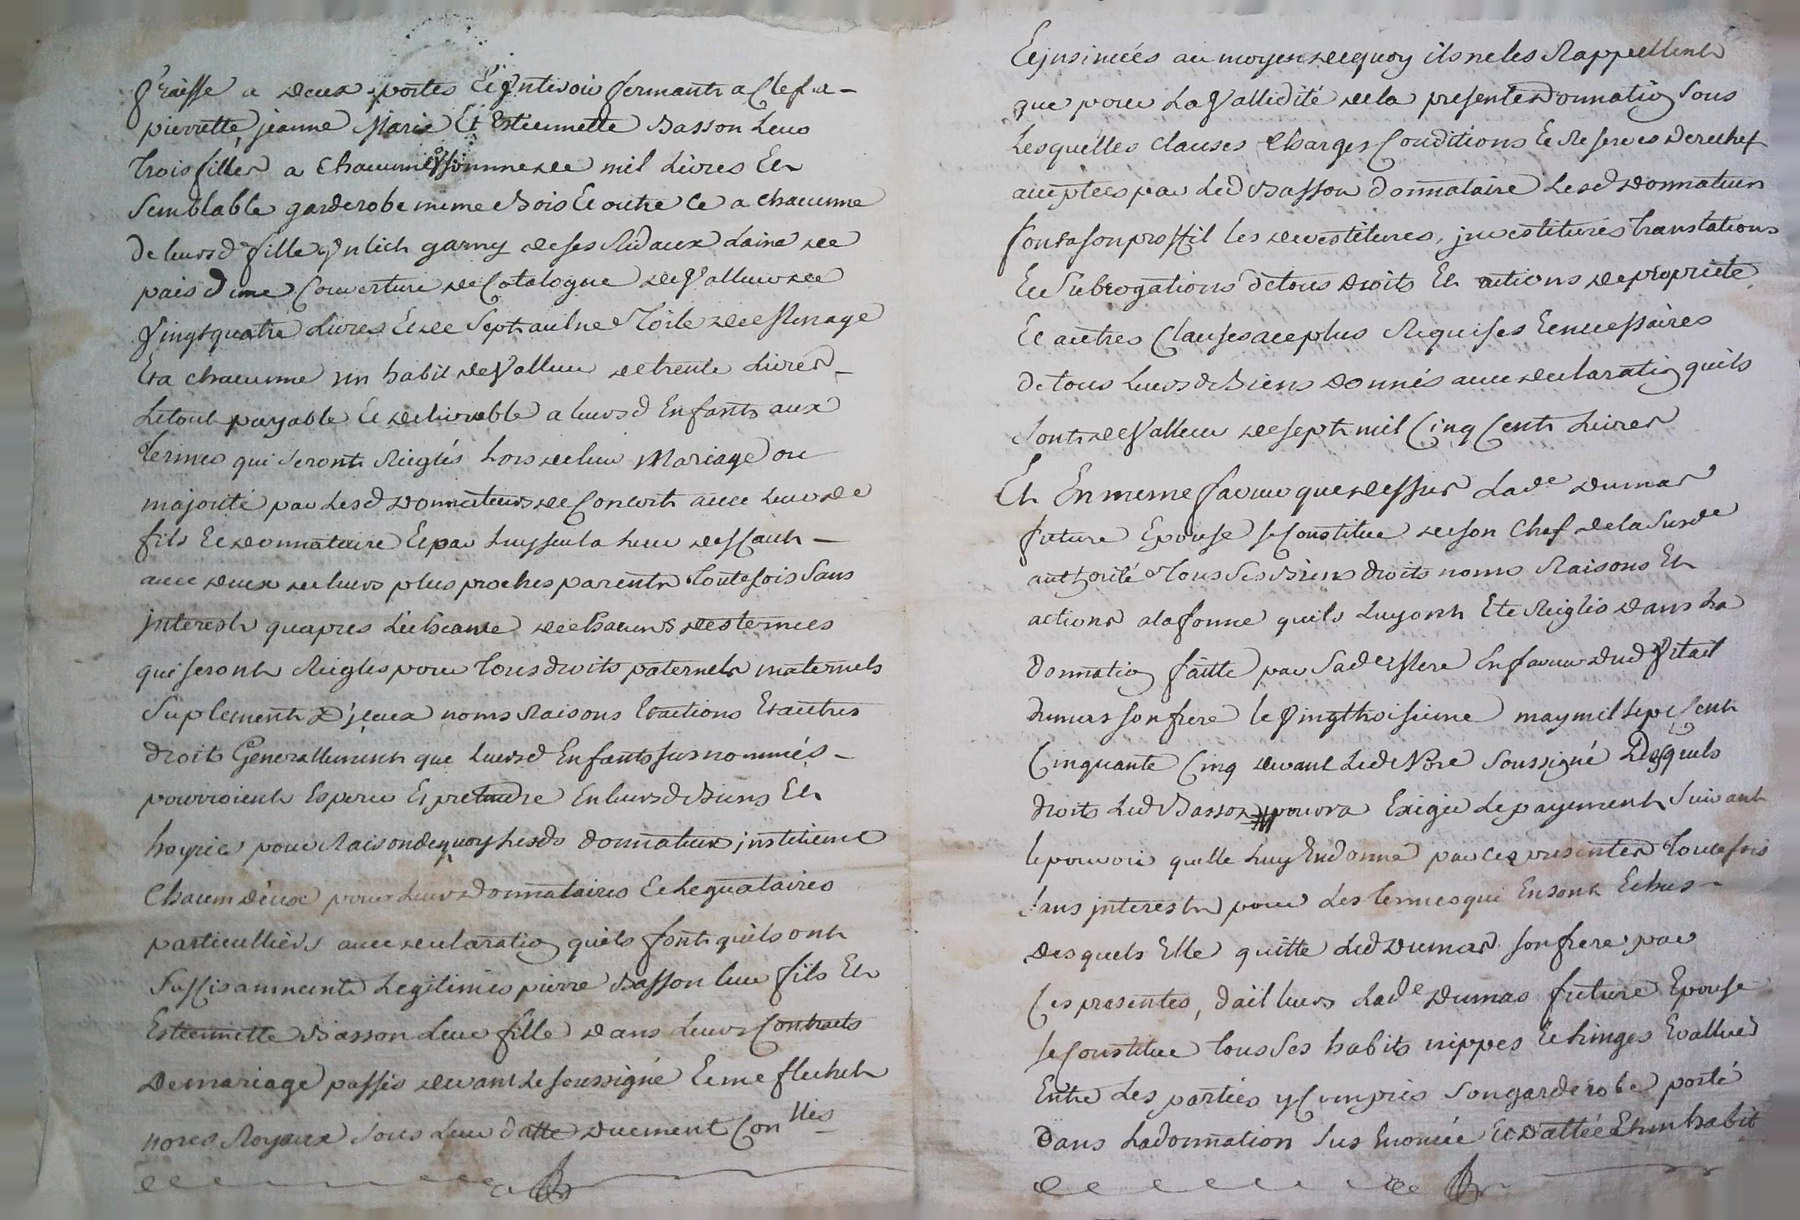 fraisse a deux portes et un tiroir fermant a Clef a –
pierrette, jeanne Marie Et Estiennette Basson leurs
trois filles a chacunne somme de mil Livres Et
Semblable garderobe meme Bois Et outre Ce a chacunne
de leursd filles un lict garny de ses Ridaux Laine de
pais d'une Couverture de Catalogne de Valleur de
Vingt quatre Livres Et de Sept aulnes Toile de
Et a chacunne un habit de Valleur de trente Livres –
Le tout payable Et delivrable a leursd Enfants aux
Termes qui seront Reiglés Lors de leur Mariage ou
majorité par Lesd donnateurs de Concert avec leurd
fils Et donnataire Et par Luy seul a leur deffaut –
avec deux de leurs plus proches parents Toutefois Sans
jnterest qu'apres L'Echeance de chacuns des termes
qui seront Reiglés pour Tous droits paternels maternels
Suplement D'jceux noms Raisons Et actions Et autres
droits Generallement que Leursd Enfants susnommés –
pourroient Esperer Et pretendre En leursd Biens Et
hoyrie pour Raison de quoy Lesds donnateurs jnstituent
Chacun d'eux pour Leurs donnataires Et Legataires
particulliers avec declaration quils font quils ont
Suffisamment Legitimés pierre Basson leur fils Et
Estiennette Basson Leur fille dans Leurs Contracts
De mariage passés devant Le soussigné Et me flechet
nores Royaux Sous Leur datte duement Conllés
Et jnsinués au moyen de quoy ils ne les Rappellent
que pour La Vallidité de la presente Donnation Sous
Lesquelles clauses Charges Conditions Et Reserves derechef
acceptées par Led Basson donnataire Lesd Donnateurs
font a son proffit les devestitures, jnvestitures translations
Et Subrogations de tous droits Et actions de proprieté
Et autres Clauses a ce plus Requises Et necessaires
de tous Leursd Biens donnés avec declaration quils
Sont de Valleur de sept mil Cinq Cents Livres
Et En meme faveur que dessus Lade Dumas
future Epouse se Constitue de son Chef de la Susde
authorité Tous Ses Biens droits noms Raisons Et
actions a la forme quils Luy ont Eté Reiglés dans La
donnation faitte par Sade Mere En faveur dud Vital
dumas son frere le Vingt troisieme may mil sept Cent
Cinquante Cinq devant Led Nore Soussigné Desquels
droits Led Basson pourra Exiger Le payement Suivant
le pouvoir quelle Luy En donne par Ces presentes Toutefois
Sans jnterest pour Les termes qui En sont Echus –
Desquels Elle quitte Led Dumas son frere par
Ces presentes, d'ailleurs Lade Dumas future Epouse
se Constitue tous Ses habits nippes Et Linges Evalluéd
Entre Les parties y Compris Son garderobe porté
Dans La donnation Sus Enoncée Et Dattée Et un habit